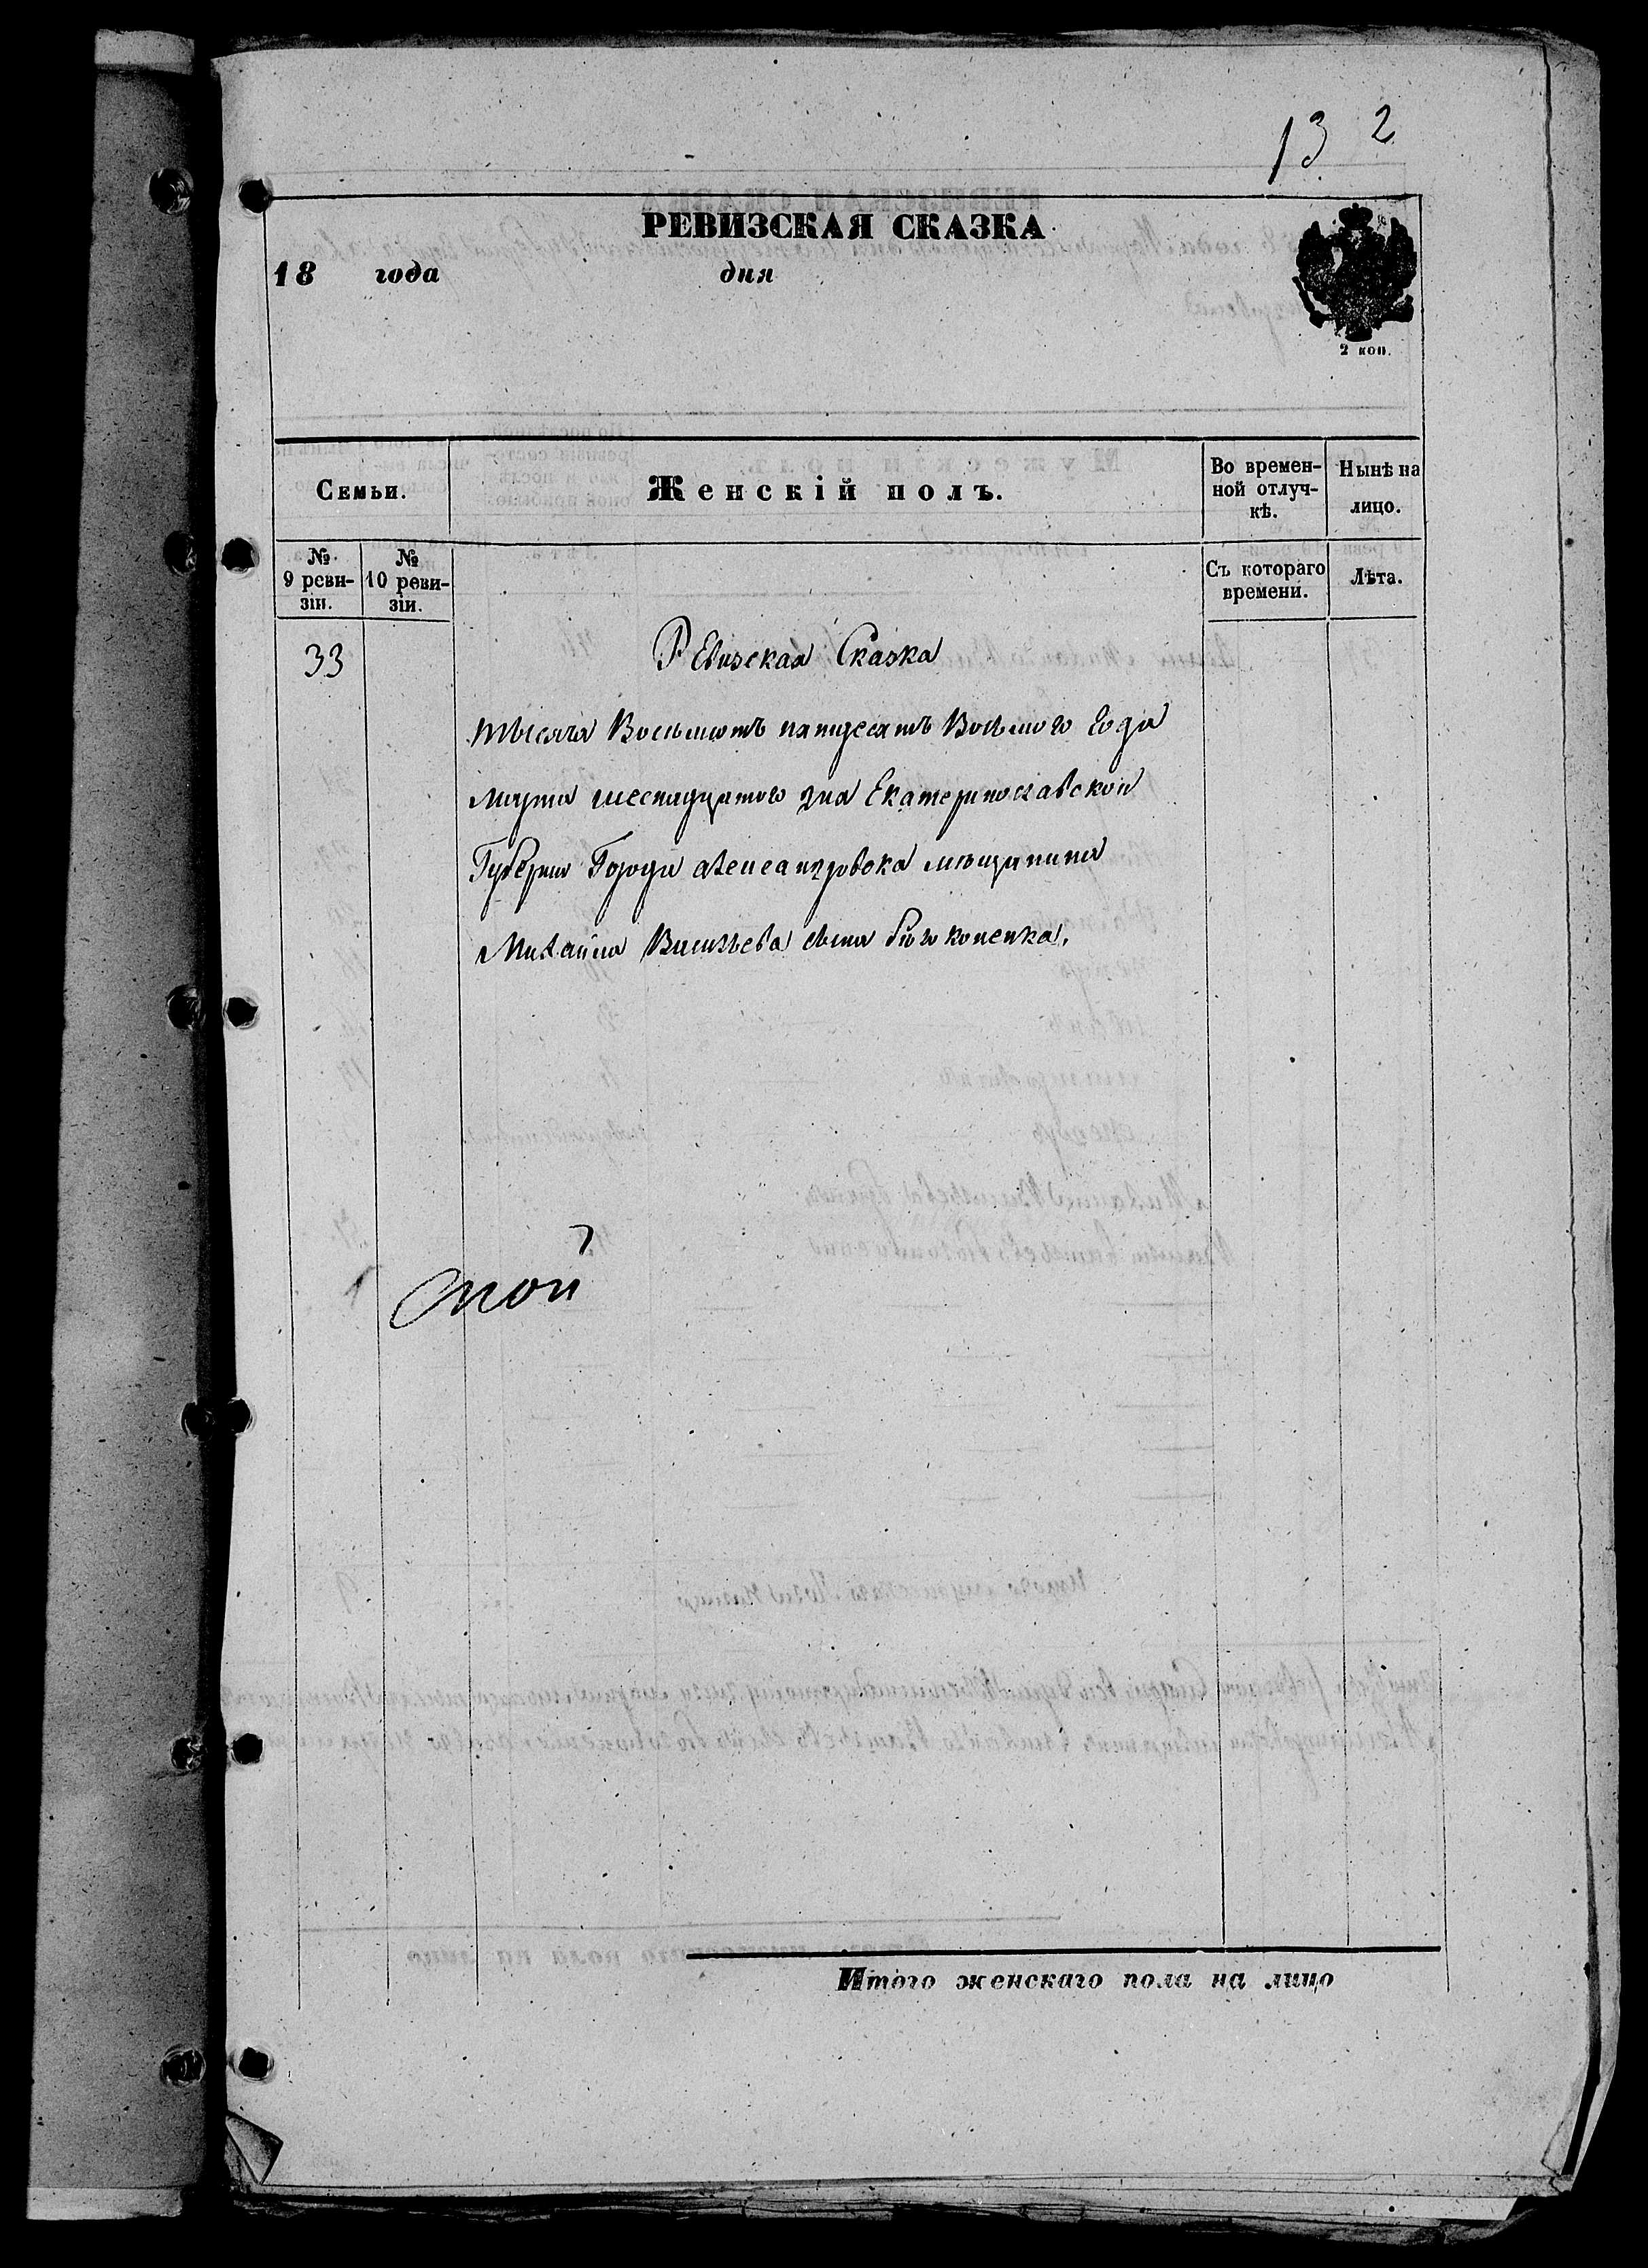 13 2
РЕВИЗСКАЯ СКАЗКА
18 года дня
2 коп.
Семьи.
Женскій полъ.
Во времен-
ной отлуч-
кѣ.
Нынѣ на
лицо.
№
9 реви-
зіи.
№
10 реви-
зіи.
Съ котораго
времени.
Лѣта.
33
Ревизская Сказка
тысяча Восьмотъ пятдесятъ Восьмого Года
марта шеснадцатого дня Екатеринославской
Губернии Города александровска мещанина
Михайла Васильева сына
Итого женскаго пола на лицо